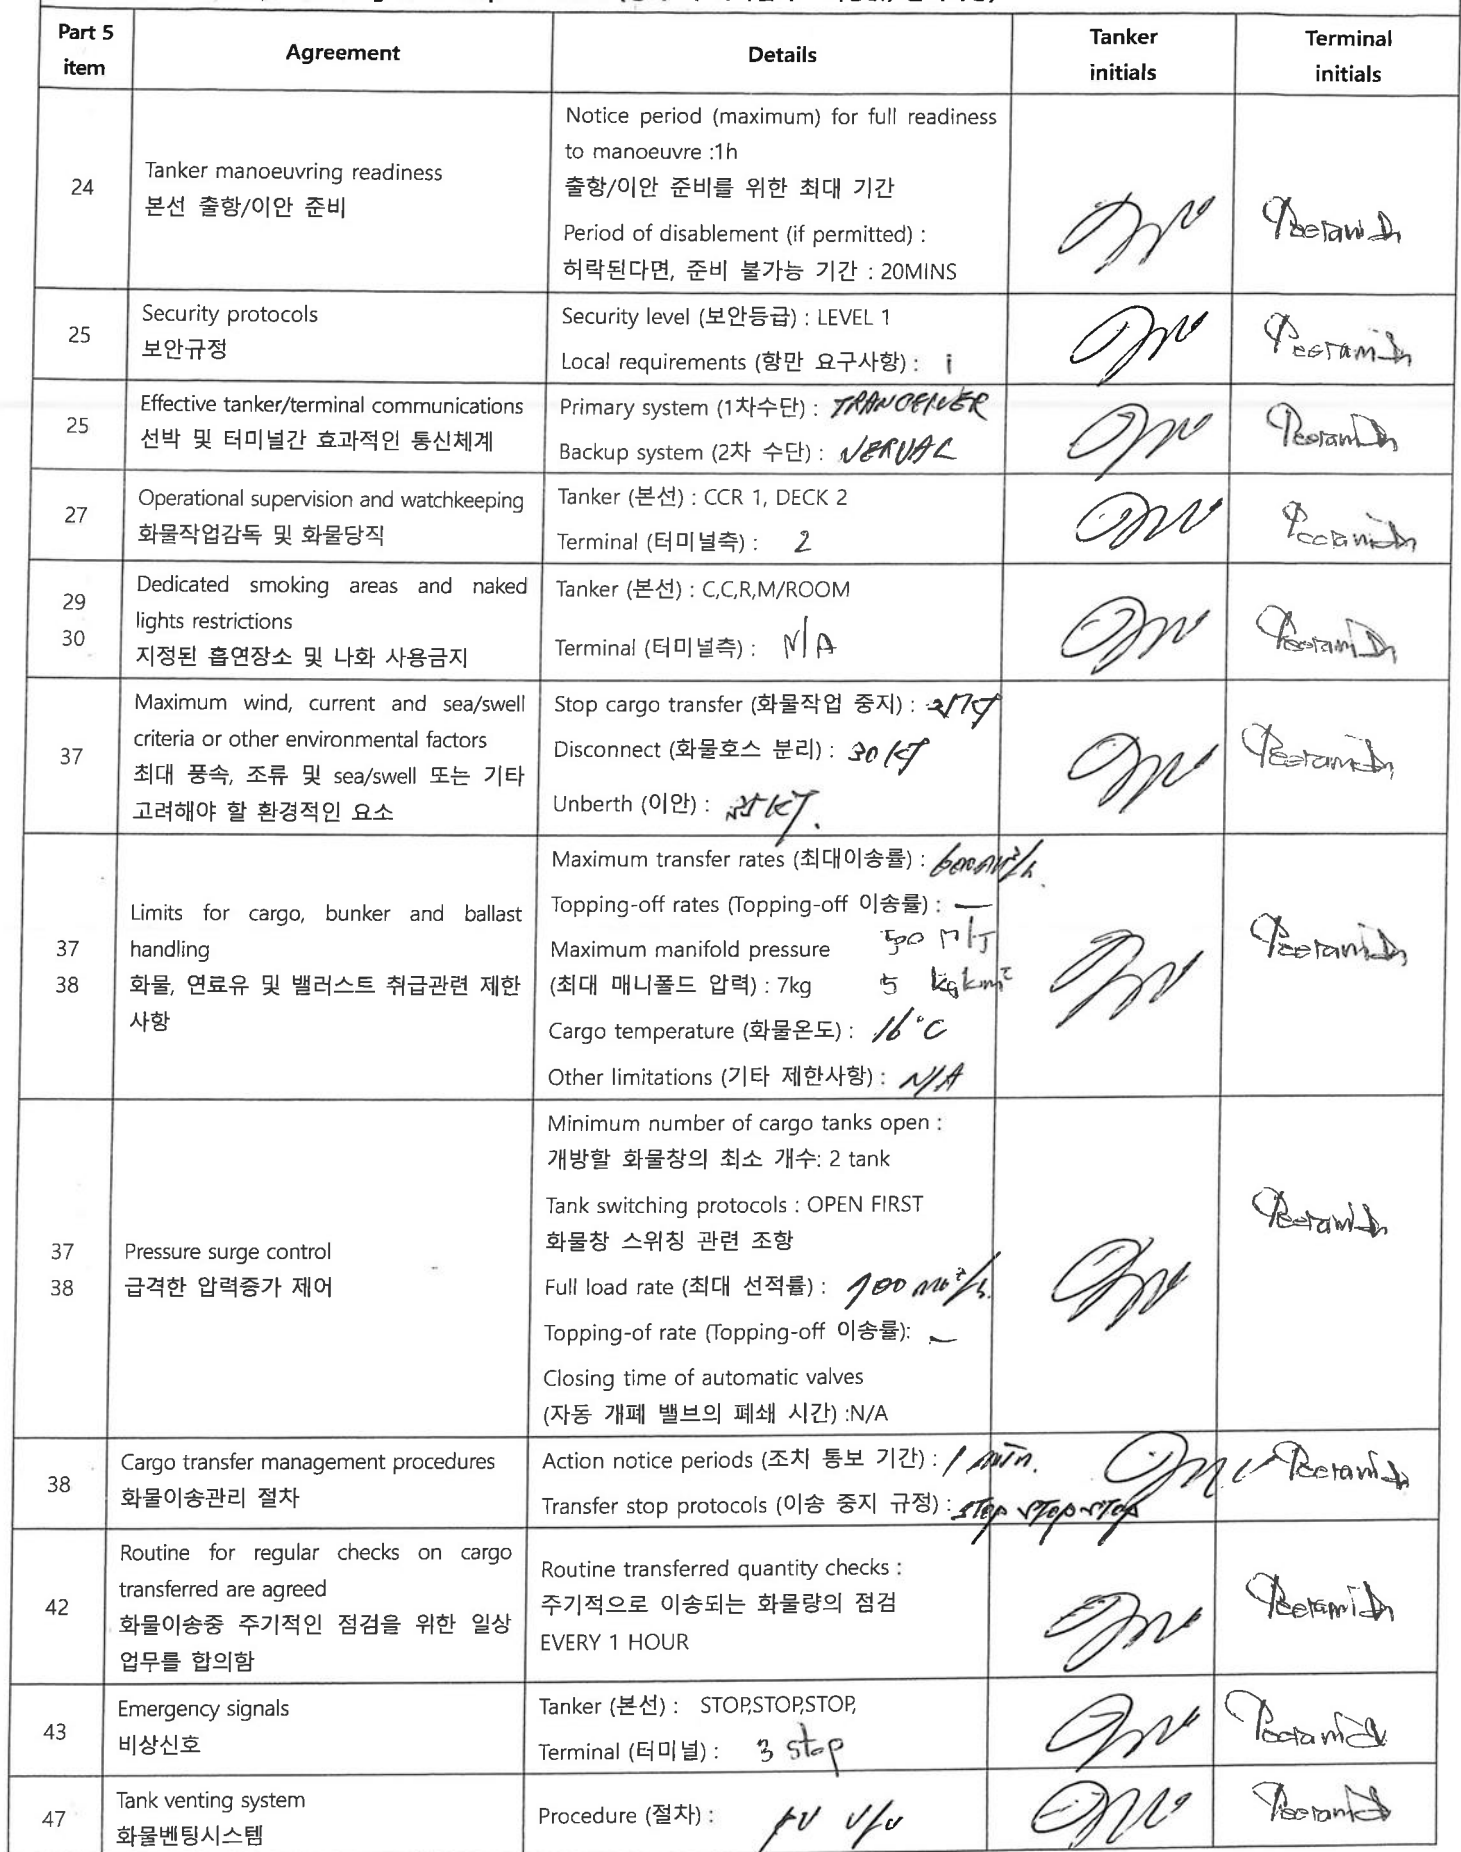 Part 5 item
Agreement
Details
Tanker initials
Terminal initials
24
Tanker manoeuvring readiness
본선 출항/이안 준비
Notice period (maximum) for full readiness
to manoeuvre :1h
출항/이안 준비를 위한 최대 기간
Period of disablement (if permitted) :
허락된다면, 준비 불가능 기간 : 20MINS
25
Security protocols
보안규정
Security level (보안등급) : LEVEL 1
Local requirements (항만 요구사항) : i
25
Effective tanker/terminal communications
선박 및 터미널간 효과적인 통신체계
Primary system (1차수단) : TRANCEIVER
Backup system (2차 수단) : VERVAL
27
Operational supervision and watchkeeping
화물작업감독 및 화물당직
Tanker (본선) : CCR 1, DECK 2
Terminal (터미널측) : 2
29
30
Dedicated smoking areas and naked
lights restrictions
지정된 흡연장소 및 나화 사용금지
Tanker (본선) : C,C,R,M/ROOM
Terminal (터미널측) : N/A
37
Maximum wind, current and sea/swell
criteria or other environmental factors
최대 풍속, 조류 및 sea/swell 또는 기타
고려해야 할 환경적인 요소
Stop cargo transfer (화물작업 중지) : 25KT
Disconnect (화물호스 분리) : 30 KT
Unberth (이안) : 35 KT.
37
38
Limits for cargo, bunker and ballast
handling
화물, 연료유 및 밸러스트 취급관련 제한
사항
Maximum transfer rates (최대이송률) :
Topping-off rates (Topping-off 이송률) : —
Maximum manifold pressure
(최대 매니폴드 압력) : 7kg 5
Cargo temperature (화물온도) : 16°C
Other limitations (기타 제한사항) : N/A
37
38
Pressure surge control
급격한 압력증가 제어
Minimum number of cargo tanks open :
개방할 화물창의 최소 개수: 2 tank
Tank switching protocols : OPEN FIRST
화물창 스위칭 관련 조항
Full load rate (최대 선적률) :
Topping-of rate (Topping-off 이송률): —
Closing time of automatic valves
(자동 개폐 밸브의 폐쇄 시간) :N/A
38
Cargo transfer management procedures
화물이송관리 절차
Action notice periods (조치 통보 기간) : 1 min.
Transfer stop protocols (이송 중지 규정) : STOP STOP STOP
42
Routine for regular checks on cargo
transferred are agreed
화물이송중 주기적인 점검을 위한 일상
업무를 합의함
Routine transferred quantity checks :
주기적으로 이송되는 화물량의 점검
EVERY 1 HOUR
43
Emergency signals
비상신호
Tanker (본선) : STOP,STOP,STOP,
Terminal (터미널) : 3 stop
47
Tank venting system
화물벤팅시스템
Procedure (절차) :